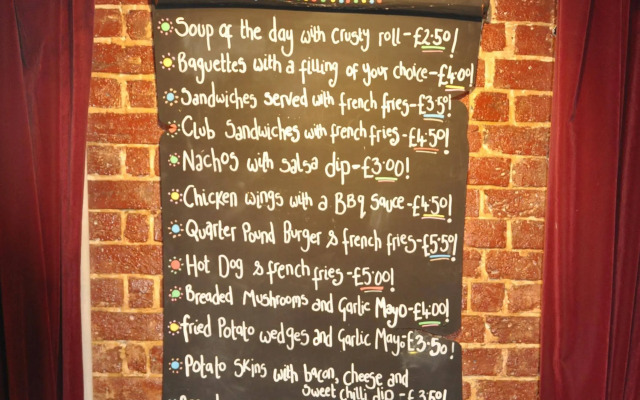 Soup of the day with crusty roll-£2.50!
Baguettes with a filling of your choice-£4.00!
Sandwiches served with french fries-£3.50!
Club Sandwiches with french fries-£4.50!
Nachos with salsa dip-£3.00!
Chicken wings with a BBQ sauce-£4.50!
Quarter Pound Burger & french fries-£5.50!
Hot Dog & french fries-£5.00!
Breaded Mushrooms and Garlic Mayo-£4.00!
fried Potato wedges and Garlic Mayo-£3.50!
Potato skins with bacon, cheese and
sweet chilli dip -£3.50!